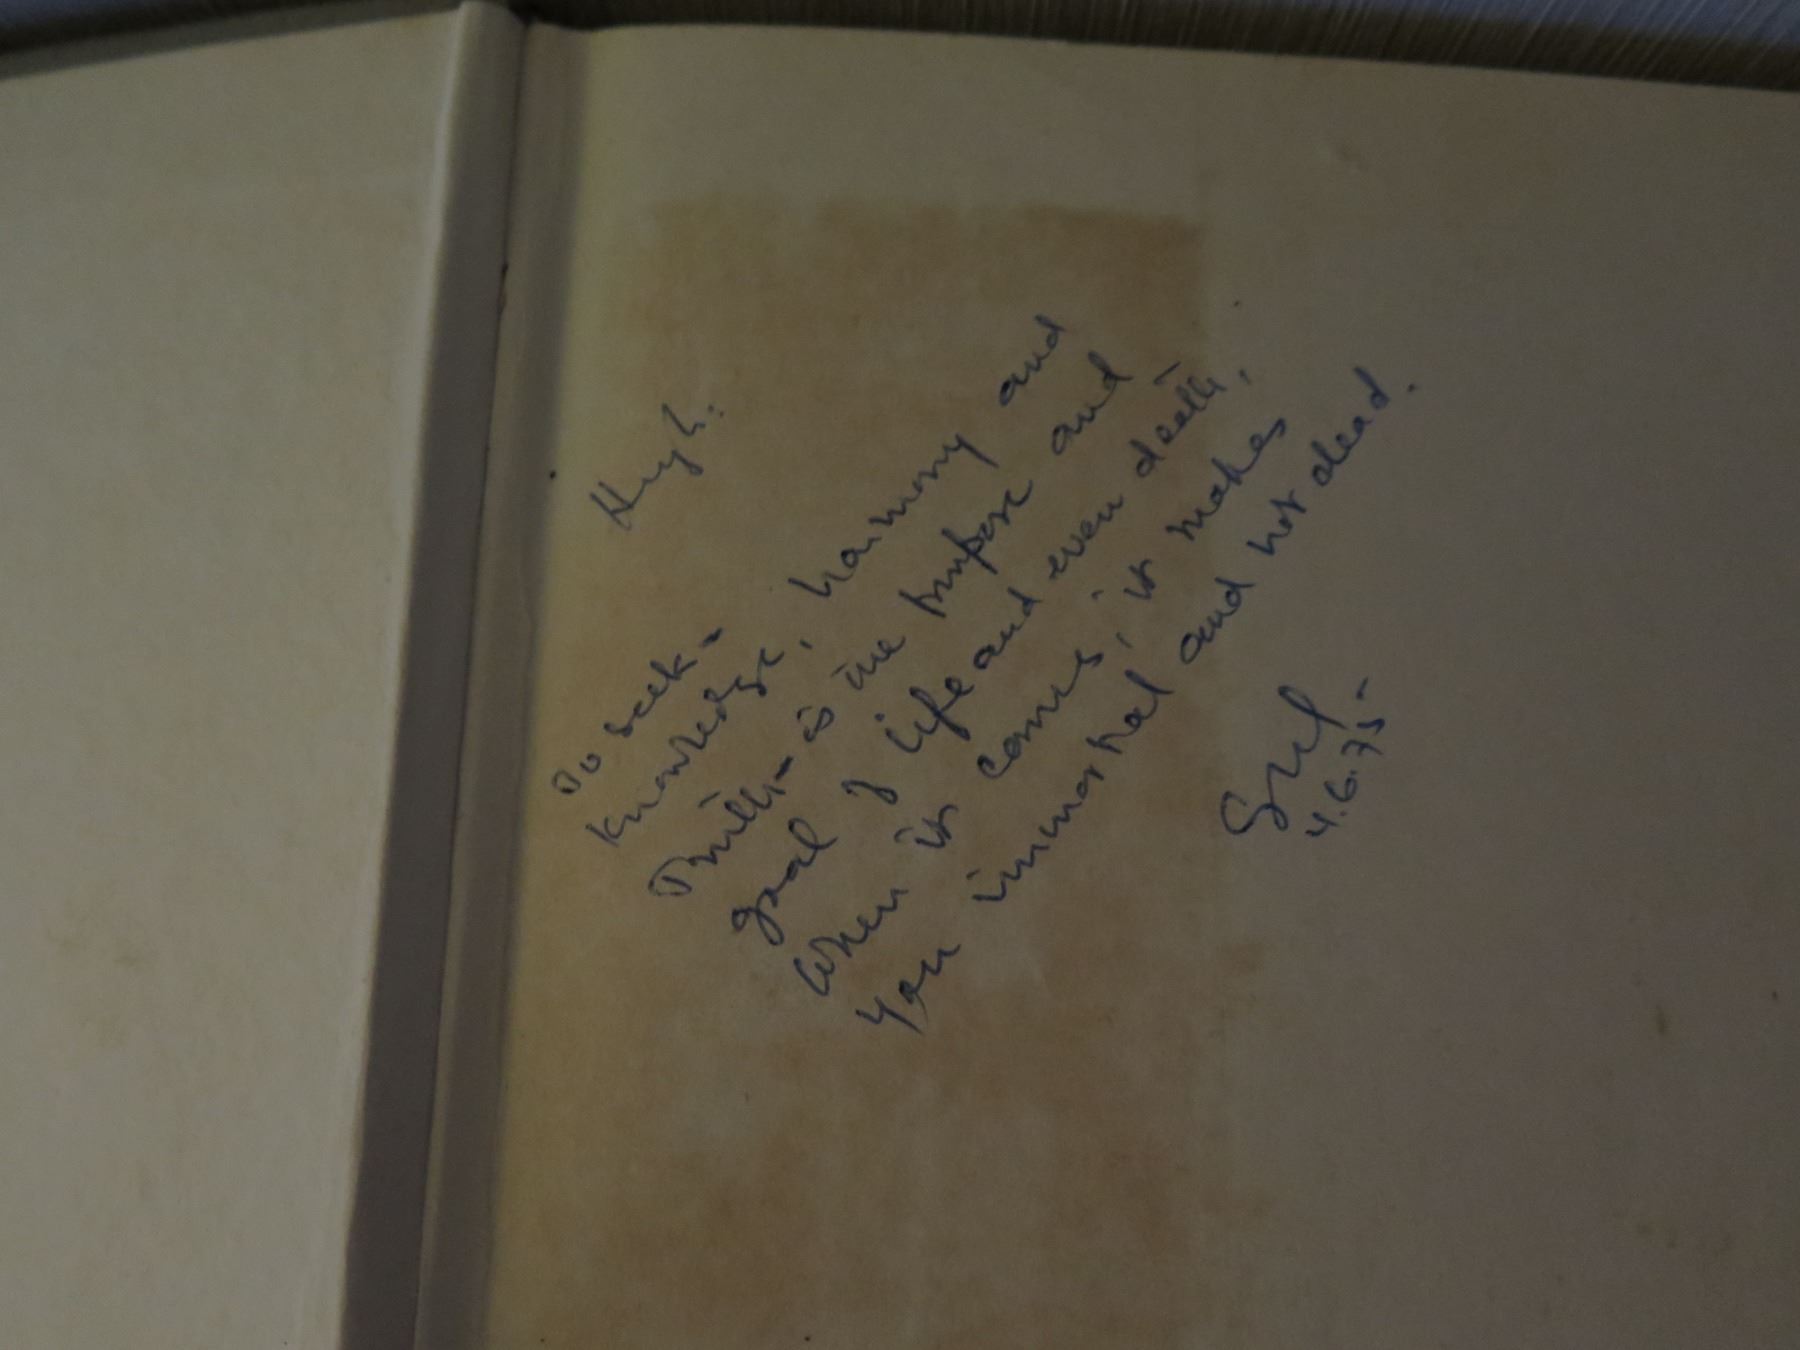 Hugh:
To seek -
knowledge, harmony and
Truth - is the purpose and
goal of life and even death,
when it comes, it makes
you immortal and not dead.
4.6.75